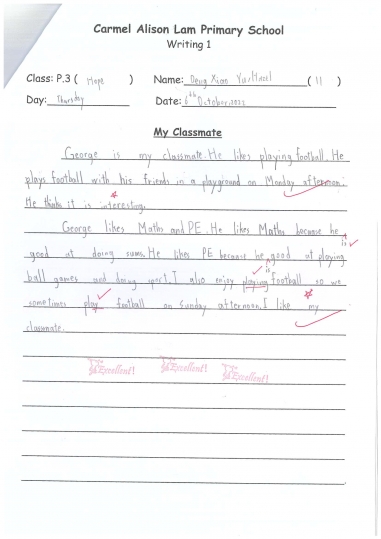 Carmel Alison Lam Primary School
Writing 1
Class: P.3 ( Hope ) Name: Deng Xian Yu, Hazel ( 11 )
Day: Thursday Date: 6th October, 2022
My Classmate
George is my classmate. He likes playing football. He
plays football with his friends in a playground on Monday afternoon.
He thinks it is interesting.
George likes Maths and PE. He likes Maths because he
is
good at doing sums. He likes PE because he good at playing
is
ball games and doing sport. I also enjoy playing football so we
sometimes play football on Sunday afternoon. I like my
classmate.
Excellent! Excellent! Excellent!